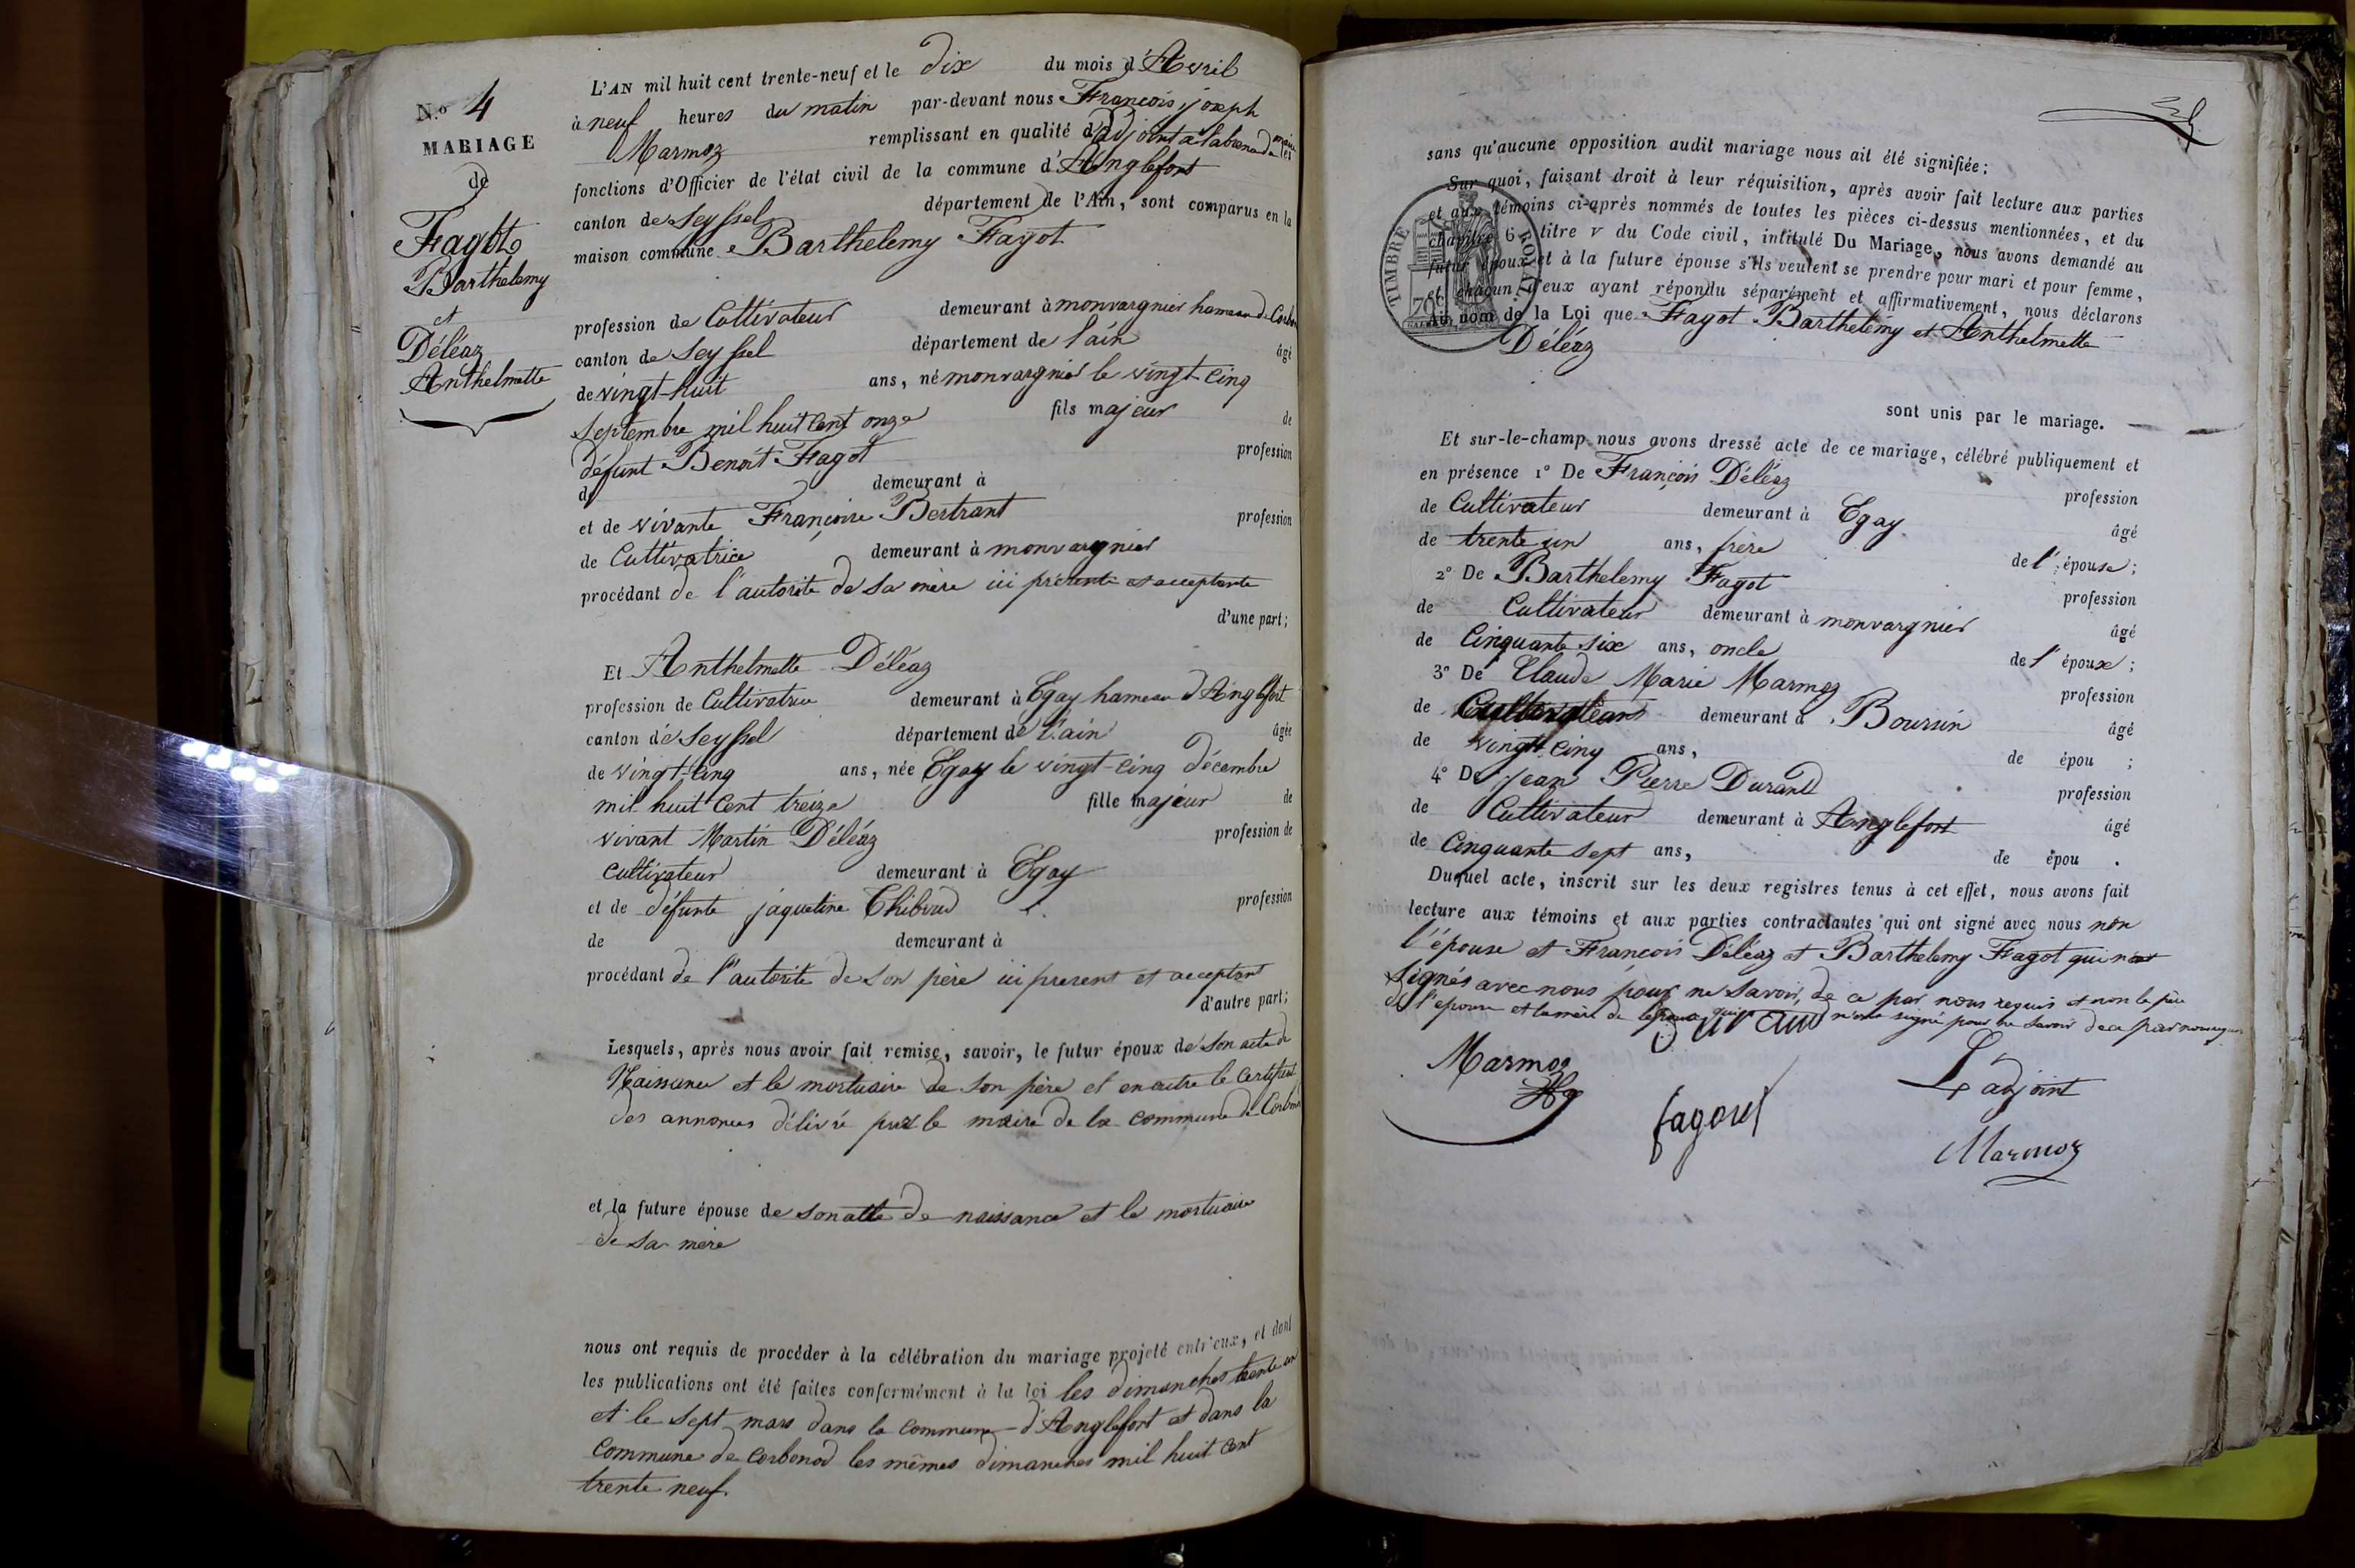 N.º 4
MARIAGE
de
Fagot
Barthelemy
et
Déléaz
Anthelmette
L'AN mil huit cent trente-neuf et le dix du mois d'Avril
à neuf heures du matin par-devant nous François joseph
Marmoz remplissant en qualité d'adjoint à l'absence du maire les
fonctions d'Officier de l'état civil de la commune d'Anglefort
canton de Seyssel département de l'Ain, sont comparus en la
maison commune Barthelemy Fagot
profession de Cultivateur demeurant à monvargnier hameau de Corbonod
canton de Seyssel département de l'ain âgé
de vingt-huit ans, né monvargnier le vingt-cinq
septembre mil huit cent onze fils majeur de
défunt Benoit Fagot profession
d demeurant à
et de vivante Françoise Bertrant profession
de Cultivatrice demeurant à monvargnier
procédant de l'autorité de sa mère ici présente et acceptante
d'une part;
Et Anthelmette Déléaz
profession de Cultivatrice demeurant à Egay hameau d'Anglefort
canton de Seyssel département de l'ain âgée
de vingt-cinq ans, née Egay le vingt-cinq décembre
mil huit cent treize fille majeur de
vivant Martin Déléaz profession de
cultivateur demeurant à Egay
et de défunte jaqueline Thiboud profession
de demeurant à
procédant de l'autorité de son père ici present et acceptant
d'autre part;
Lesquels, après nous avoir fait remise, savoir, le futur époux de son acte de
Naissance et le mortuaire de son père et en outre le Certificat
des annonces délivré par le maire de la commune de Corbonod
et la future épouse de son acte de naissance et le mortuaire
de sa mère
nous ont requis de procéder à la célébration du mariage projeté entr'eux, et dont
les publications ont été faites conformément à la loi les dimanches trente un
et le sept mars dans la commune d'Anglefort et dans la
Commune de Corbonod les mêmes dimanches mil huit cent
trente neuf.
sans qu'aucune opposition audit mariage nous ait été signifiée;
Sur quoi, faisant droit à leur réquisition, après avoir fait lecture aux parties
et aux témoins ci-après nommés de toutes les pièces ci-dessus mentionnées, et du
chapitre 6, titre V du Code civil, intitulé Du Mariage, nous avons demandé au
futur époux et à la future épouse s'ils veulent se prendre pour mari et pour femme,
et chacun d'eux ayant répondu séparément et affirmativement, nous déclarons
Au nom de la Loi que Fagot Barthelemy et Anthelmette
Déléaz
TIMBRE ROYAL
sont unis par le mariage.
Et sur-le-champ nous avons dressé acte de ce mariage, célébré publiquement et
en présence 1º De François Déléaz profession
de Cultivateur demeurant à Egay âgé
de trente un ans, frère de l'épouse;
2º De Barthelemy Fagot profession
de Cultivateur demeurant à monvargnier âgé
de Cinquante six ans, oncle de l'époux;
3º De Claude Marie Marmoz profession
de Cultivateur demeurant à Boursin âgé
de vingt cinq ans, de épou ;
4º De jean Pierre Durand profession
de Cultivateur demeurant à Anglefort âgé
de Cinquante sept ans, de épou .
Duquel acte, inscrit sur les deux registres tenus à cet effet, nous avons fait
lecture aux témoins et aux parties contractantes qui ont signé avec nous non
l'épouse et François Déléaz et Barthelemy Fagot qui n'ont
signés avec nous pour ne savoir, de ce par nous requis et non le père
de l'epouse et la mère de n'ont signé pour ne savoir de ce par nous
Durand
Marmoz
L'adjoint
fagot
Marmoz